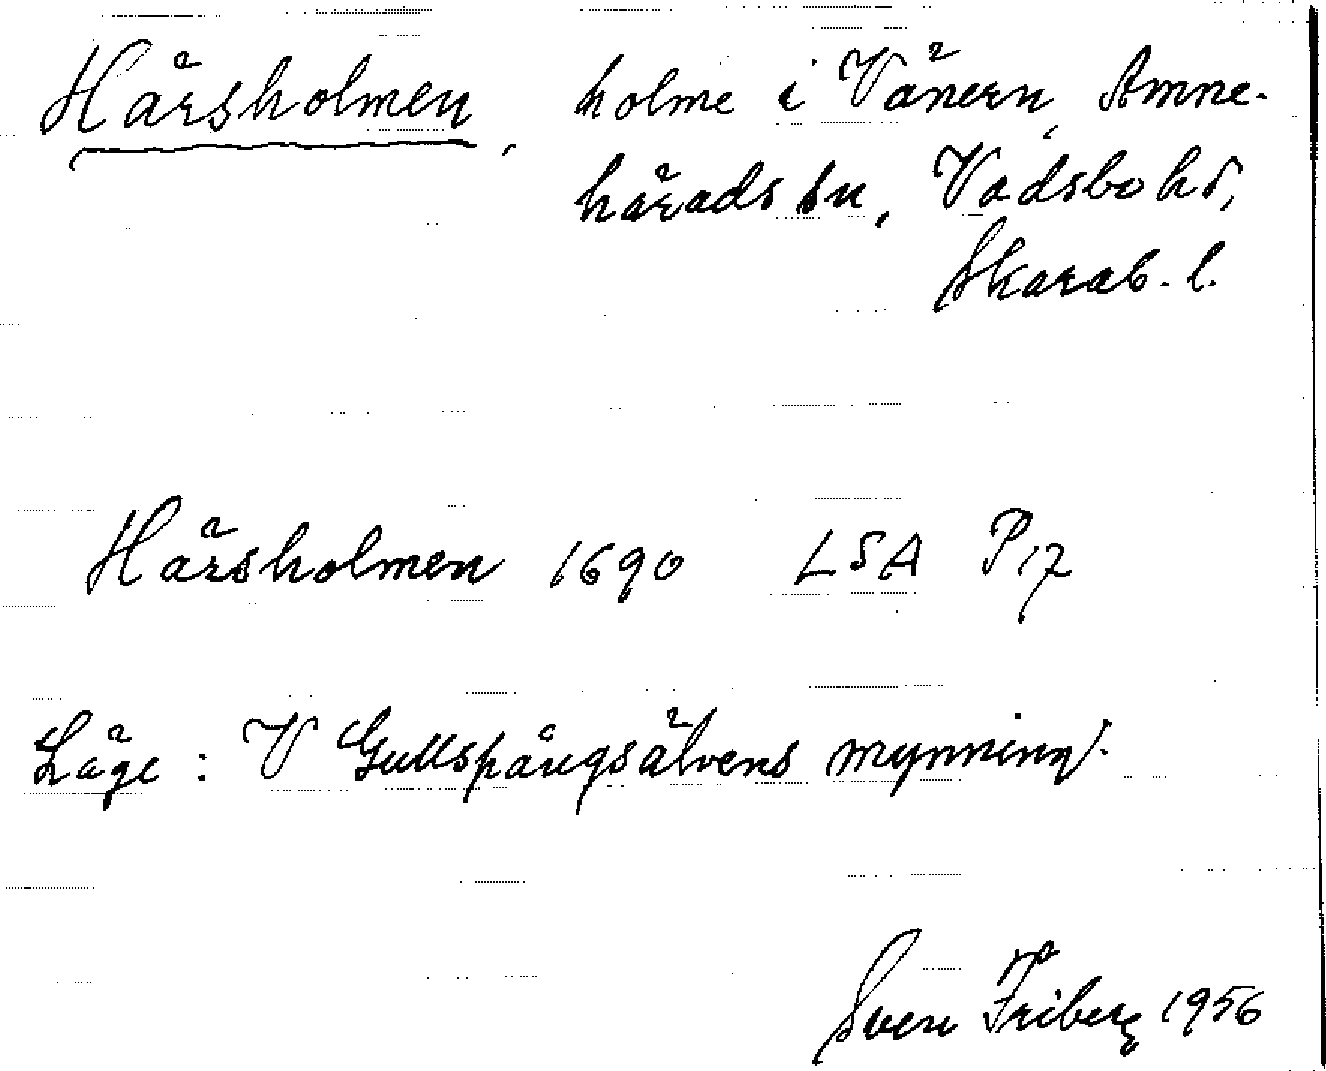 Härsholmen, holme i Vänern, Amne-
härads sn, Vadsbo hd,
Skarab. l.
Härsholmen 1690 LSA P17
Läge: V Gullspångsälvens mynning.
Sven Friberg 1956